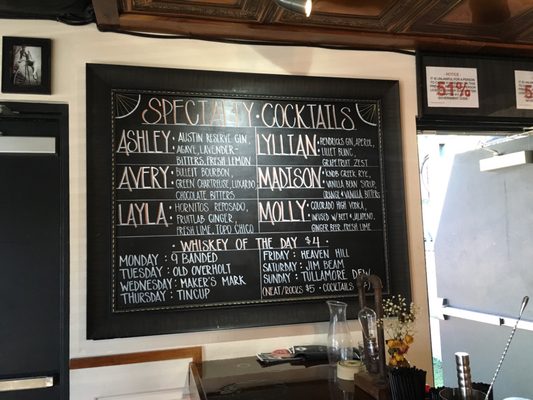 SPECIALTY · COCKTAILS
ASHLEY · AUSTIN RESERVE GIN,
AGAVE, LAVENDER-
BITTERS, FRESH LEMON
AVERY · BULLEIT BOURBON,
GREEN CHARTREUSE, LUXARDO
CHOCOLATE BITTERS
LAYLA · HORNITOS REPOSADO,
FRUITLAB GINGER,
FRESH LIME, TOPO CHICO
LYLLIAN · HENDRICKS GIN, APEROL,
LILLET BLANC,
GRAPEFRUIT ZEST
MADISON · KNOB CREEK RYE,
VANILLA BEAN SYRUP,
ORANGE + VANILLA BITTERS
MOLLY · COLORADO HIGH VODKA,
INFUSED W/ BEET + JALAPENO,
GINGER BEER, FRESH LIME
· WHISKEY OF THE DAY $4 ·
MONDAY : 9 BANDED
TUESDAY : OLD OVERHOLT
WEDNESDAY : MAKER'S MARK
THURSDAY : TINCUP
FRIDAY : HEAVEN HILL
SATURDAY : JIM BEAM
SUNDAY : TULLAMORE DEW
(NEAT/ROCKS $5 · COCKTAILS
NOTICE
51%
51%